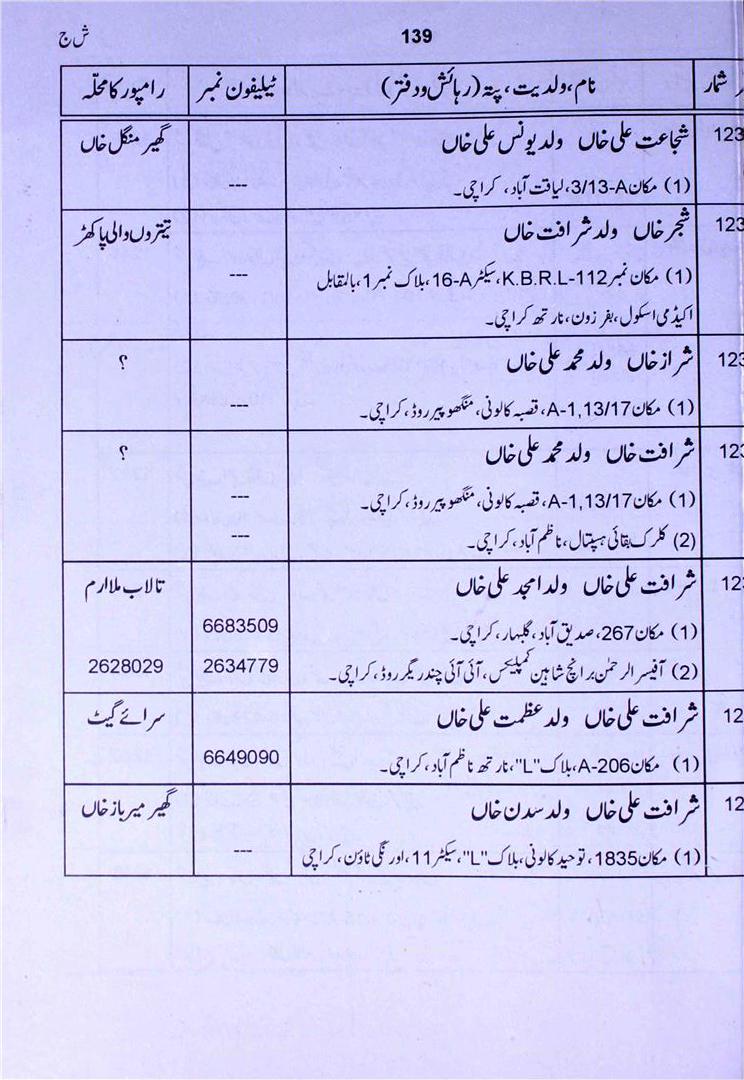 139
ش ج
ر شمار	نام، ولدیت، پتہ (رہائش و دفتر)	ٹیلیفون نمبر	رامپور کا محلّہ
123	شجاعت علی خاں ولد یونس علی خاں	گھیر منگل خاں
(1) مکان 3/13-A، لیاقت آباد، کراچی۔	---
123	شجر خاں ولد شرافت خاں	تیتروں والی پاکھڑ
(1) مکان نمبر K.B.R.L-112، سیکٹر 16-A، بلاک نمبر 1، بالمقابل	---
اکیڈمی اسکول، بفرزون، نارتھ کراچی۔
123	شراز خاں ولد محمد علی خاں	؟
(1) مکان A-1,13/17، قصبہ کالونی، منگھو پیر روڈ، کراچی۔	---
123	شرافت خاں ولد محمد علی خاں	؟
(1) مکان A-1,13/17، قصبہ کالونی، منگھو پیر روڈ، کراچی۔	---
(2) کلرک بقائی ہسپتال، ناظم آباد، کراچی۔	---
123	شرافت علی خاں ولد امجد علی خاں	تالاب ملا ارم
(1) مکان 267، صدیق آباد، گلبہار، کراچی۔	6683509
(2) آفیسر الرحمٰن برانچ شاہین کمپلیکس، آئی آئی چندریگر روڈ، کراچی۔	2634779	2628029
12	شرافت علی خاں ولد عظمت علی خاں	سرائے گیٹ
(1) مکان A-206، بلاک "L"، نارتھ ناظم آباد، کراچی۔	6649090
12	شرافت علی خاں ولد سدن خاں	گھیر میر باز خاں
(1) مکان 1835، توحید کالونی، بلاک "L"، سیکٹر 11، اورنگی ٹاؤن، کراچی	---